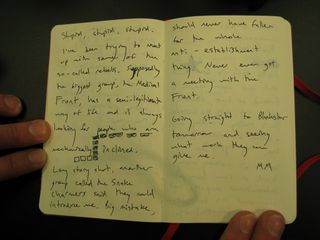 Stupid, stupid, stupid.
I've been trying to meet
up with some of the
so-called rebels. Supposedly
the biggest group, the Medical
Front, has a semi-legitimate
way of life and is always
looking for people who are
mechanically inclined.
Long story short, another
group called the Snake
Charmers said they could
introduce me. Big mistake,
should never have fallen
for the whole
anti-establishment
thing. Never even got
a meeting with the
Front.
Going straight to
tomorrow and seeing
what work they can
give me.
M.M